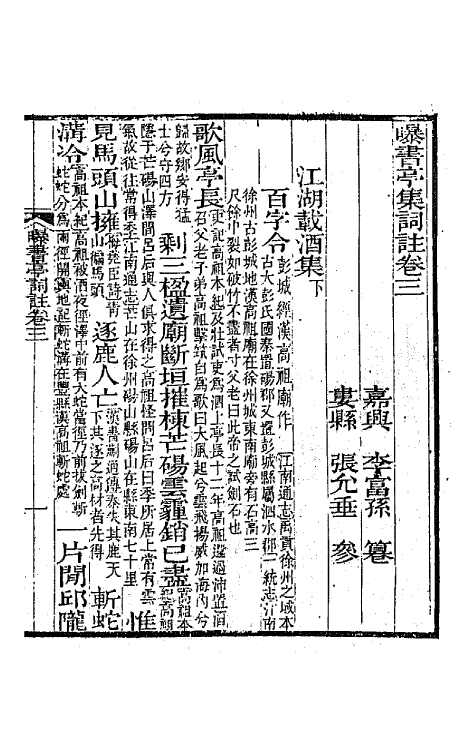 曝書亭集詞註卷三
嘉興 李富孫 纂
婁縣 張允垂 參
江湖載酒集下
百字令彭城經漢高祖廟作 江南通志禹貢徐州之域本
古大彭氏國秦置碭郡又置彭城縣屬泗水郡一統志江南
徐州古彭城地漢高祖廟在徐州城東南廟旁有石高三
尺餘中裂如破竹不盡者寸父老曰此帝之試劍石也
歌風亭長史記高祖本紀及壯試吏爲泗上亭長十二年高祖還過沛置酒
召父老子弟高祖擊筑自爲歌曰大風起兮雲飛揚威加海內兮
歸故鄉安得猛
士兮守四方 剩三楹遺廟斷垣摧棟芒碭雲霾銷已盡高祖本
紀高祖
隱于芒碭山澤間呂后與人俱求得之高祖怪問呂后曰季所居上常有雲
氣故從往常得季江南通志芒山在徐州碭山縣碭山在縣東南七十里 惟
見馬頭山擁
山編馬頭 逐鹿人亡漢書蒯通傳秦失其鹿天
下共逐之高材者先得 斬蛇
溝冷高祖本紀高祖被酒夜徑澤中前有大蛇當徑乃前拔劍斬
蛇蛇分爲兩徑開輿地記斬蛇溝在豐縣漢高祖斬蛇處 一片閒邱隴
曝書亭詞註卷三
一